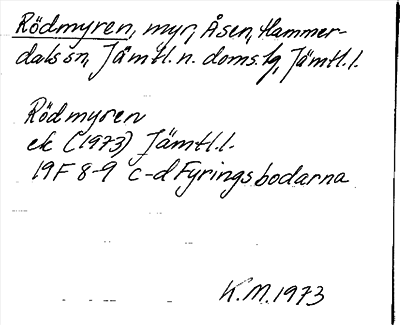 Rödmyren, myr, Åsen, Hammer-
dals sn, Jämtl. n. doms. lg, Jämtl. l.
Rödmyren
ek (1973) Jämtl. l.
19F 8-9 c-d Fyringsbodarna
K.M. 1973